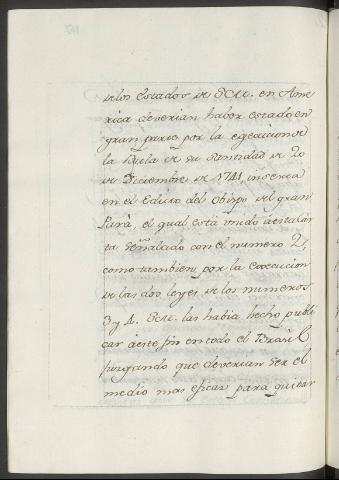 de los Estados de S.M. en Ame
rica deverian haber estado en
gran parte por la egecucion de
la Bula de su Santidad de 20
de Diciembre de 1741, inserta
en el Edicto del Obispo del gran
Pará, el qual está unido a esta Car
ta señalado con el numero 2,
como tambien por la execucion
de las dos leyes de los numeros
3 y 4. S.M. las habia hecho publi
car á este fin en todo el Brasil
juzgando que deverian ser el
medio mas eficaz para quitar